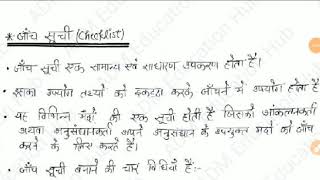 * जाँच सूची (Checklist)
• जाँच सूची एक सामान्य एवं साधारण उपकरण होता है।
• इसका उपयोग तथ्यों को इकट्ठा करके जाँचने में उपयोग होता है
• यह विभिन्न मदों की एक सूची होती है जिसको आंकलनकर्ता
अथवा अनुसंधानकर्ता अपने अनुसंधान के उपयुक्त मदों को जाँच
करने के लिए करते हैं।
• जाँच सूची बनाने की चार विधियाँ हैं:-